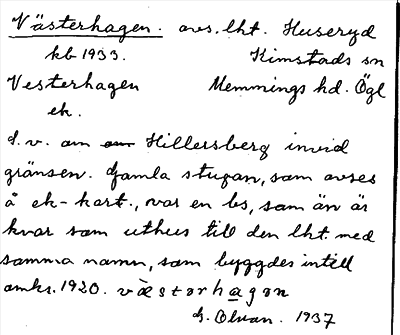 Västerhagen. avs. lht. Huseryd
kb 1933. Kimstads sn
Vesterhagen Memmings hd. Ögl
ek.
S.v. om Hillersberg invid
gränsen. Gamla stugan, som avses
å ek-kart., var en bs, som än är
kvar som uthus till den lht. med
samma namn, som byggdes intill
omkr. 1920. västərhagən
G. Olson. 1937